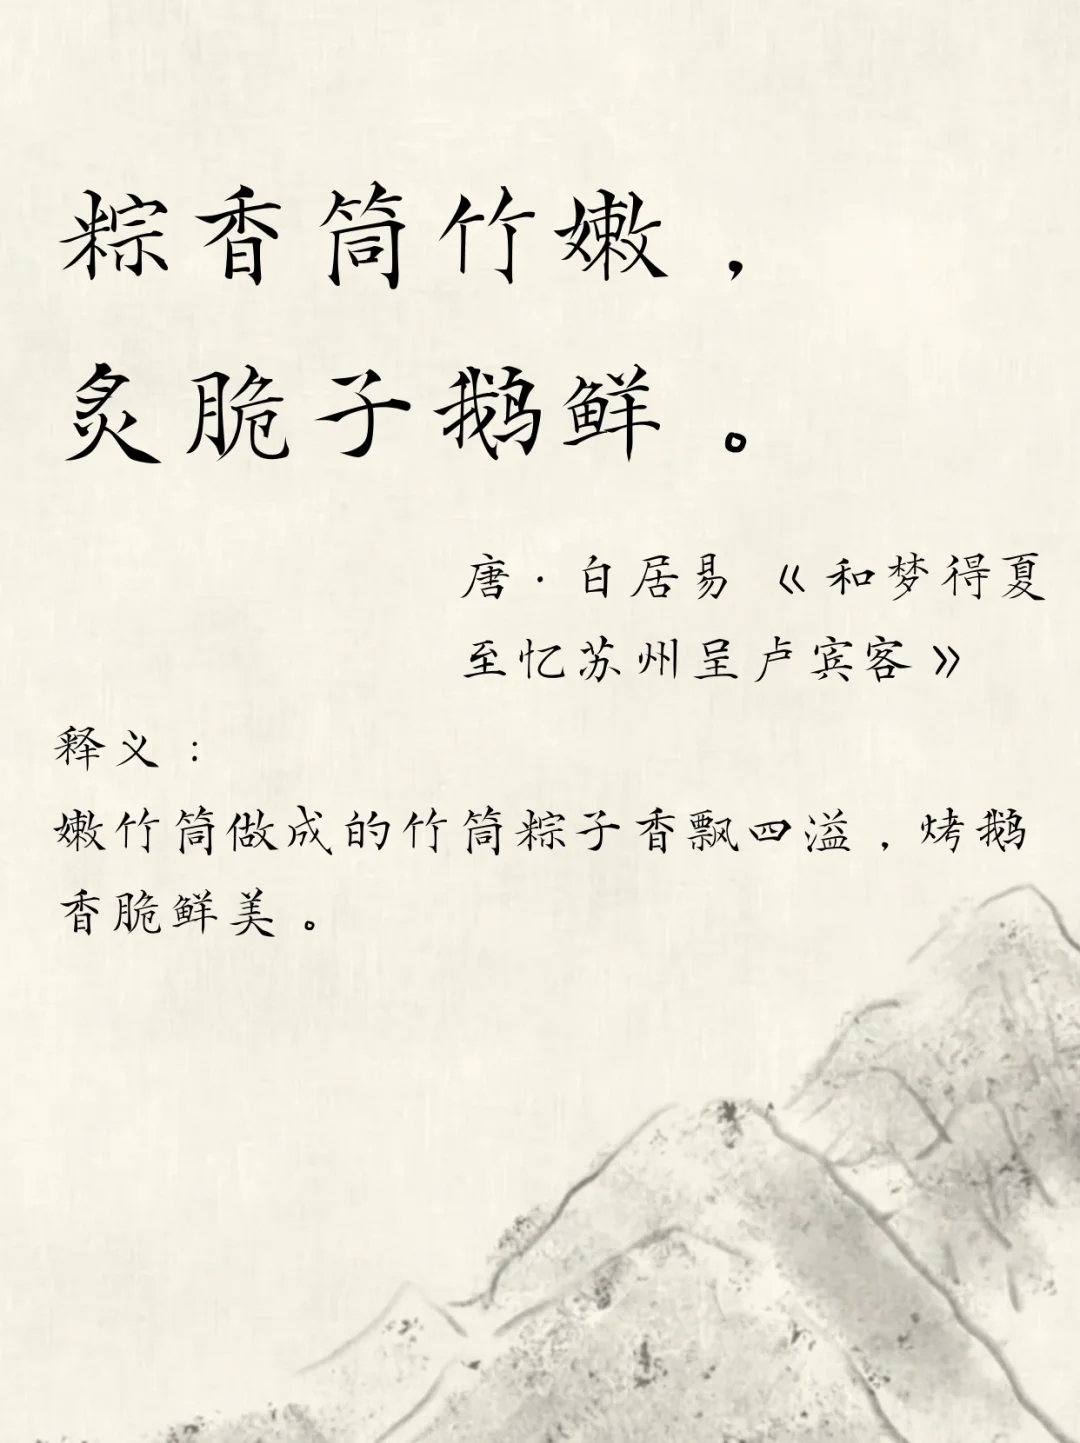 粽香筒竹嫩，
炙脆子鹅鲜。
唐·白居易《和梦得夏
至忆苏州呈卢宾客》
释义：
嫩竹筒做成的竹筒粽子香飘四溢，烤鹅
香脆鲜美。